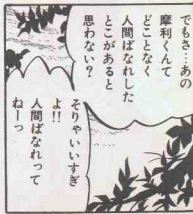 でもさ…あの
摩利くんて
どことなく
人間ばなれした
とこがあると
思わない?
そりゃいいすぎ
よ!!
人間ばなれって
ねーっ